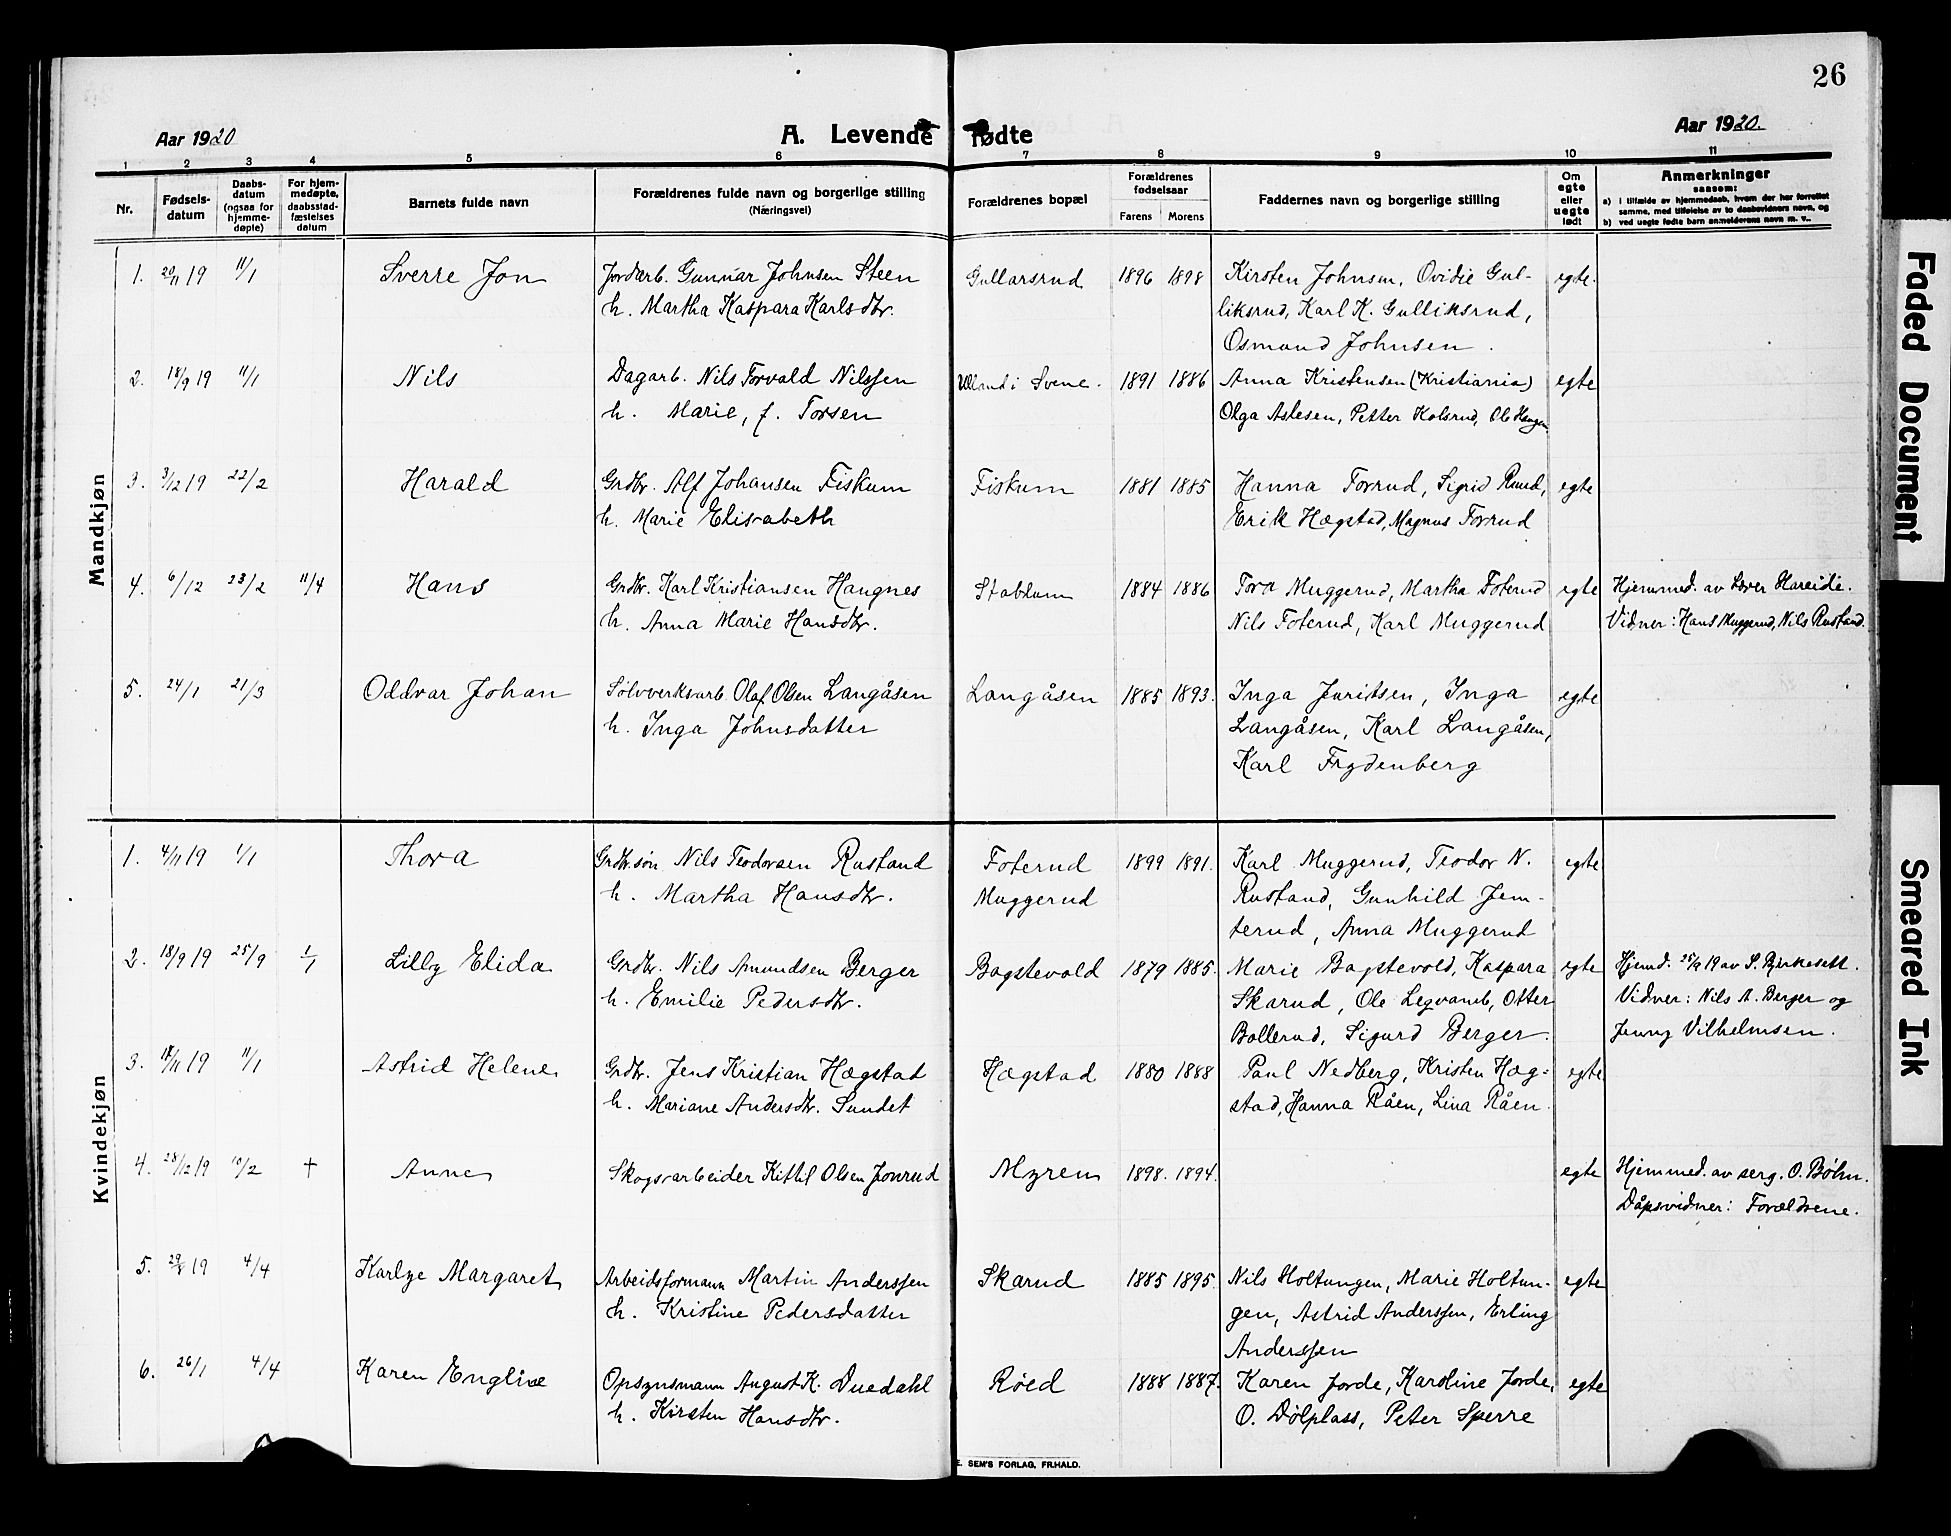 26
Aar 1920
A. Levende fødte
Aar 1920.
1 2 3 4 5 6 7 8 9 10 11
Nr.
Fødsels-
datum
Daabs-
datum
(ogsaa for
hjemme-
døpte)
For hjem-
medøpte,
daabsstad-
fæstelses
datum
Barnets fulde navn
Forældrenes fulde navn og borgerlige stilling
(Næringsvei)
Forældrenes bopæl
Forældrenes
fødselsaar
Farens Morens
Faddernes navn og borgerlige stilling
Om
egte
eller
uegte
født
Anmerkninger
saasom:
a) i tilfælde av hjemmedaab, hvem der har forrettet
samme, med tilføielse av to daabsvidners navn, og
b) ved uegte fødte barn anmelderens navn m. v..
Mandkjøn
1. 20/11 19 11/1 Sverre Jon Jordarb. Gunnar Johnsen Steen Gullarsrud 1896 1898 Kirsten Johnsen, Ovidie Gul- egte.
h. Martha Kaspara Karlsdtr. liksrud, Karl K. Gulliksrud,
Osmund Johnsen.
2. 18/9 19 11/1 Nils Dagarb. Nils Torvald Nilssen i Svene. 1891 1886 Anna Kristensen (Kristiania) egte
h. Marie, f. Torsen Olga Aslesen, Petter Kolsrud, Ole Haugen
3. 3/12 19 22/2 Harald Grdbr. Alf Johansen Fiskum Fiskum 1881 1885 Hanna Forrud, Sigrid Ruud, egte
h. Marie Elisabeth Erik Hægstad, Magnus Forrud
4. 6/12 23/2 11/4 Hans Grdbr. Karl Kristiansen Haugnes Stablum 1884 1886 Tora Muggerud, Martha Foterud egte Hjemmed. av Lærer Hareide.
h. Anna Marie Hansdtr. Nils Foterud, Karl Muggerud Vidner: Hans Muggerud, Nils Rustand.
5. 24/1 21/3 Oddvar Johan Sølvverksarb. Olaf Olsen Langåsen Langåsen 1885 1893. Inga Juritsen, Inga egte
h. Inga Johnsdatter Langåsen, Karl Langåsen,
Karl Frydenberg
Kvindekjøn
1. 4/11 19 1/1 Thora Grdbr.søn Nils Teodorsen Rustand Foterud 1899 1891. Karl Muggerud, Teodor N. egte
h. Martha Hansdtr. Muggerud Rustand, Gunhild Jem-
terud, Anna Muggerud
2. 18/9 19 25/9 1/1 Lilly Elida Grdbr. Nils Amundsen Berger Bagstevold 1879 1885. Marie Bagstevold, Kaspara egte Hjemd. 25/9 19 av S. Birkesett.
h. Emilie Pedersdtr. Skarud, Ole Legvamb, Otter Vidner: Nils A. Berger og
Bollerud, Sigurd Berger. Jenny Vilhelmsen.
3. 11/1 Astrid Helene Grdbr. Jens Kristian Hægstad Hægstad 1880 1888 Paul Nedberg, Kristen Hæg- egte
h. Mariane Andersdtr. Sundet stad, Hanna Råen, Lina Råen.
4. 28/12 19 10/2 † Anne Skogsarbeider Kittil Olsen Jonrud Myren 1898. 1894. egte Hjemmed. av serg. O. Bøhn.
Dåpsvidner: Forældrene.
5. 29/8 19 4/4 Karlye Margaret Arbeidsformann Martin Anderssen Skarud 1885 1895. Nils Holtungen, Marie Holtun- egte
h. Kristine Pedersdatter gen, Astrid Anderssen, Erling
Anderssen
6. 26/1 4/4 Karen Engline Opsynsmann August K. Duedahl Røed 1888 1887. Karen Jorde, Karoline Jorde, egte
h. Kirsten Hansdtr. O. Dølplass, Peter Sperre
E. SEM'S FORLAG, FR.HALD.
Faded Document
Smeared Ink